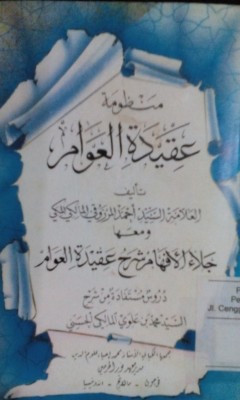 منظومة
عقيدة العوام
تأليف
العلامة السيد أحمد المرزوقي المالكي المكي
ومعها
جلاء الأفهام شرح عقيدة العوام
دروس مستفادة من شرح
السيد محمد بن علوي المالكي الحسني